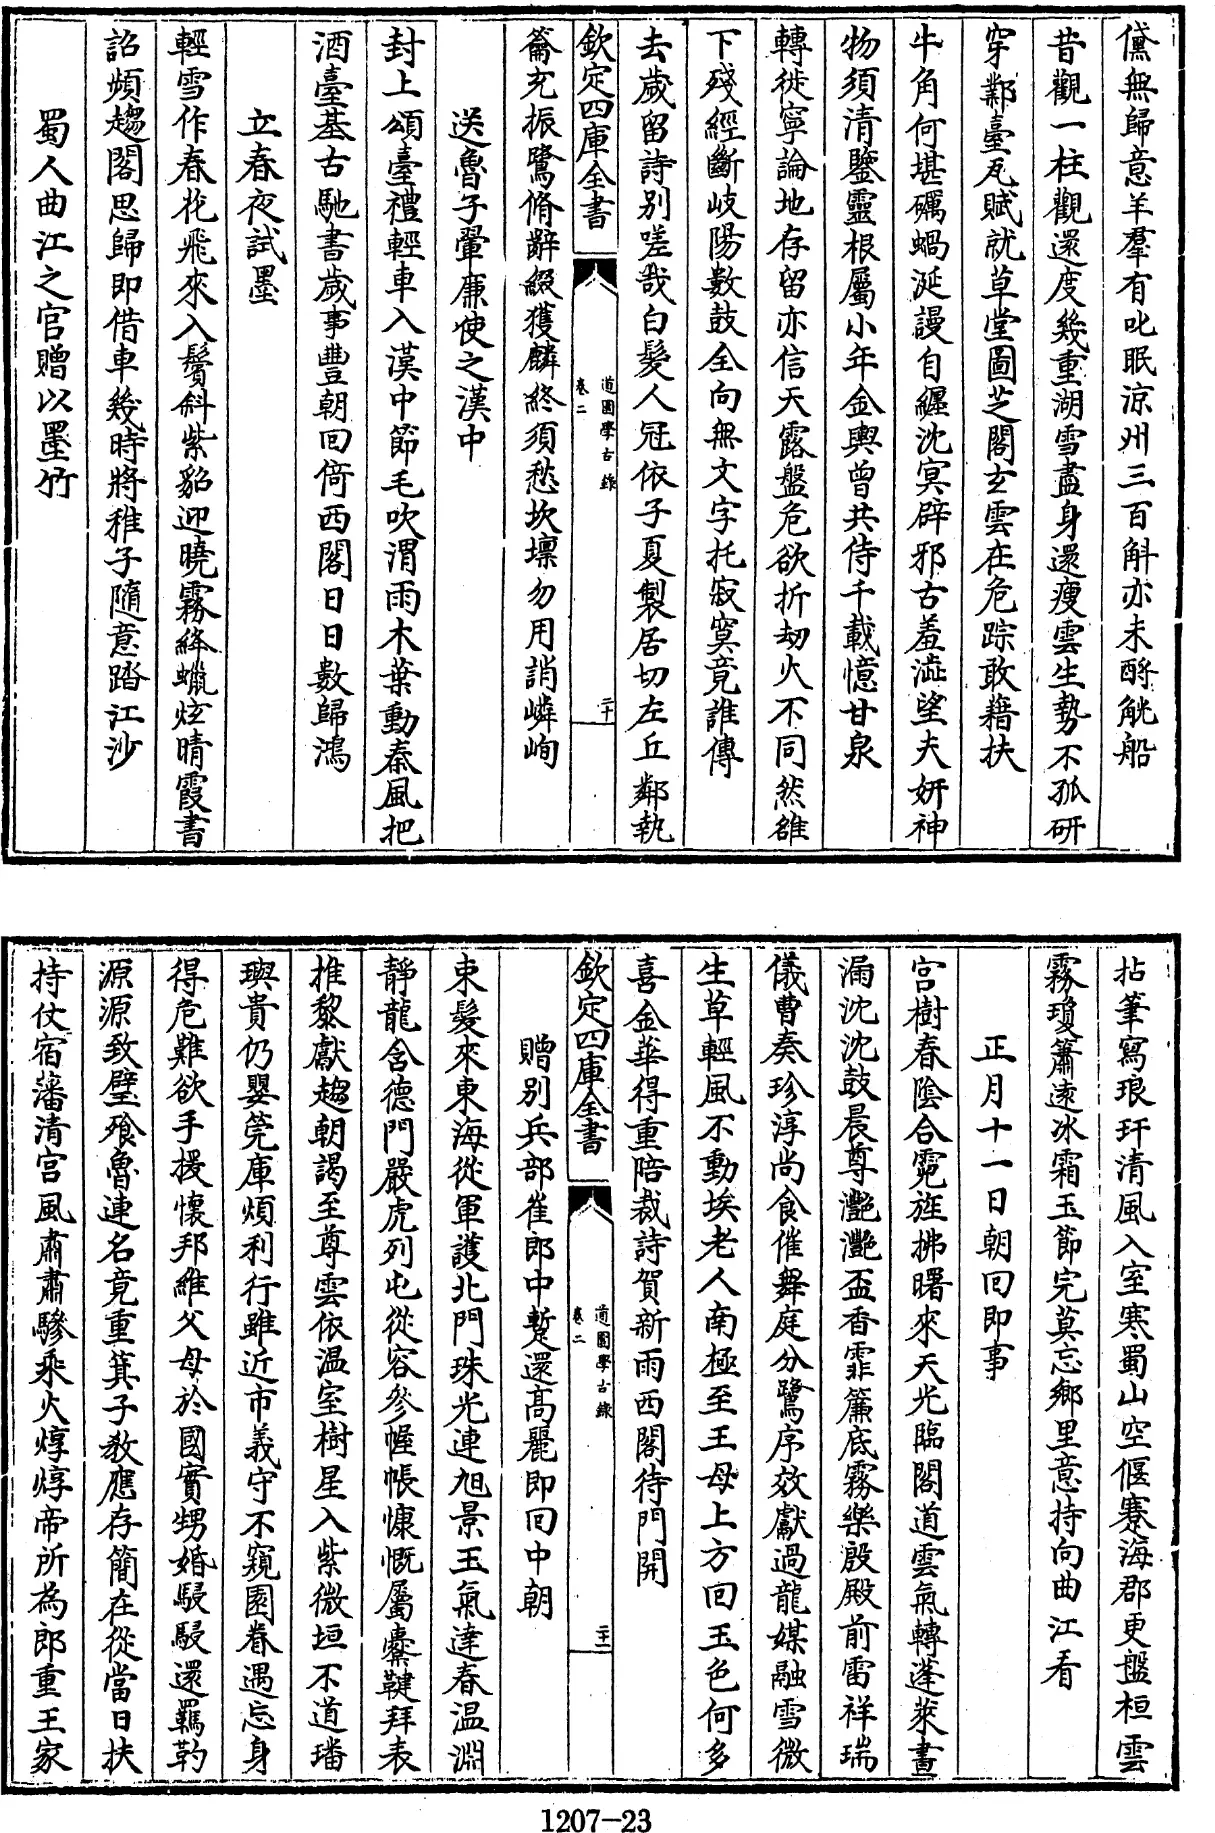 儻無歸意羊羣有叱眠涼州三百斛亦未酹觥船
昔觀一柱觀還度幾重湖雪盡身還瘦雲生勢不孤研
穿鄴臺瓦賦就草堂圖芝閣玄雲在危踪敢藉扶
牛角何堪礪蝸涎謾自纏沈冥辟邪古羞澁望夫妍神
物須清鑒靈根屬小年金輿曾共侍千載憶甘泉
轉徙寧論地存留亦信天露盤危欲折劫火不同然雒
下殘經斷岐陽數鼓全向無文字托寂寞竟誰傳
去歲留詩别嗟哉白髮人冠依子夏製居切左丘鄰執
欽定四庫全書
道園學古錄
卷二
二十
籥充振鷺脩辭綴獲麟終須愁坎壈勿用誚嶙峋
送魯子翬廉使之漢中
封上頌臺禮輕車入漢中節毛吹渭雨木葉動秦風把
酒臺基古馳書歲事豐朝回倚西閣日日數歸鴻
立春夜試墨
輕雪作春花飛來入鬢斜紫貂迎曉霧絳蠟炫晴霞書
詔頻趨閣思歸即借車幾時將稚子隨意踏江沙
蜀人曲江之官贈以墨竹
拈筆寫琅玕清風入室寒蜀山空偃蹇海郡更盤桓雲
霧瓊簫遠冰霜玉節完莫忘鄉里意持向曲江看
正月十一日朝回即事
宫樹春陰合霓旌拂曙來天光臨閣道雲氣轉蓬萊晝
漏沈沈鼓晨尊灔灔盃香霏簾底霧樂殷殿前雷祥瑞
儀曹奏珍淳尚食催舞庭分鷺序效獻過龍媒融雪微
生草輕風不動埃老人南極至王母上方回玉色何多
喜金華得重陪裁詩賀新雨西閣待門開
欽定四庫全書
道園學古錄
卷二
二十一
贈别兵部崔郎中蹔還高麗即回中朝
束髮來東海從軍護北門珠光連旭景玉氣達春温淵
靜龍含德門嚴虎列屯從容參幄帳慷慨屬櫜鞬拜表
推黎獻趨朝謁至尊雲依温室樹星入紫微垣不道璠
璵貴仍嬰筦庫煩利行雖近市義守不窺園眷遇忘身
得危難欲手援懷邦維父母於國實甥婚駸駸還羈靮
源源致璧飱魯連名竟重箕子教應存簡在從當日扶
持仗宿藩清宫風肅肅驂乘火焞焞帝所為郎重王家
1207-23